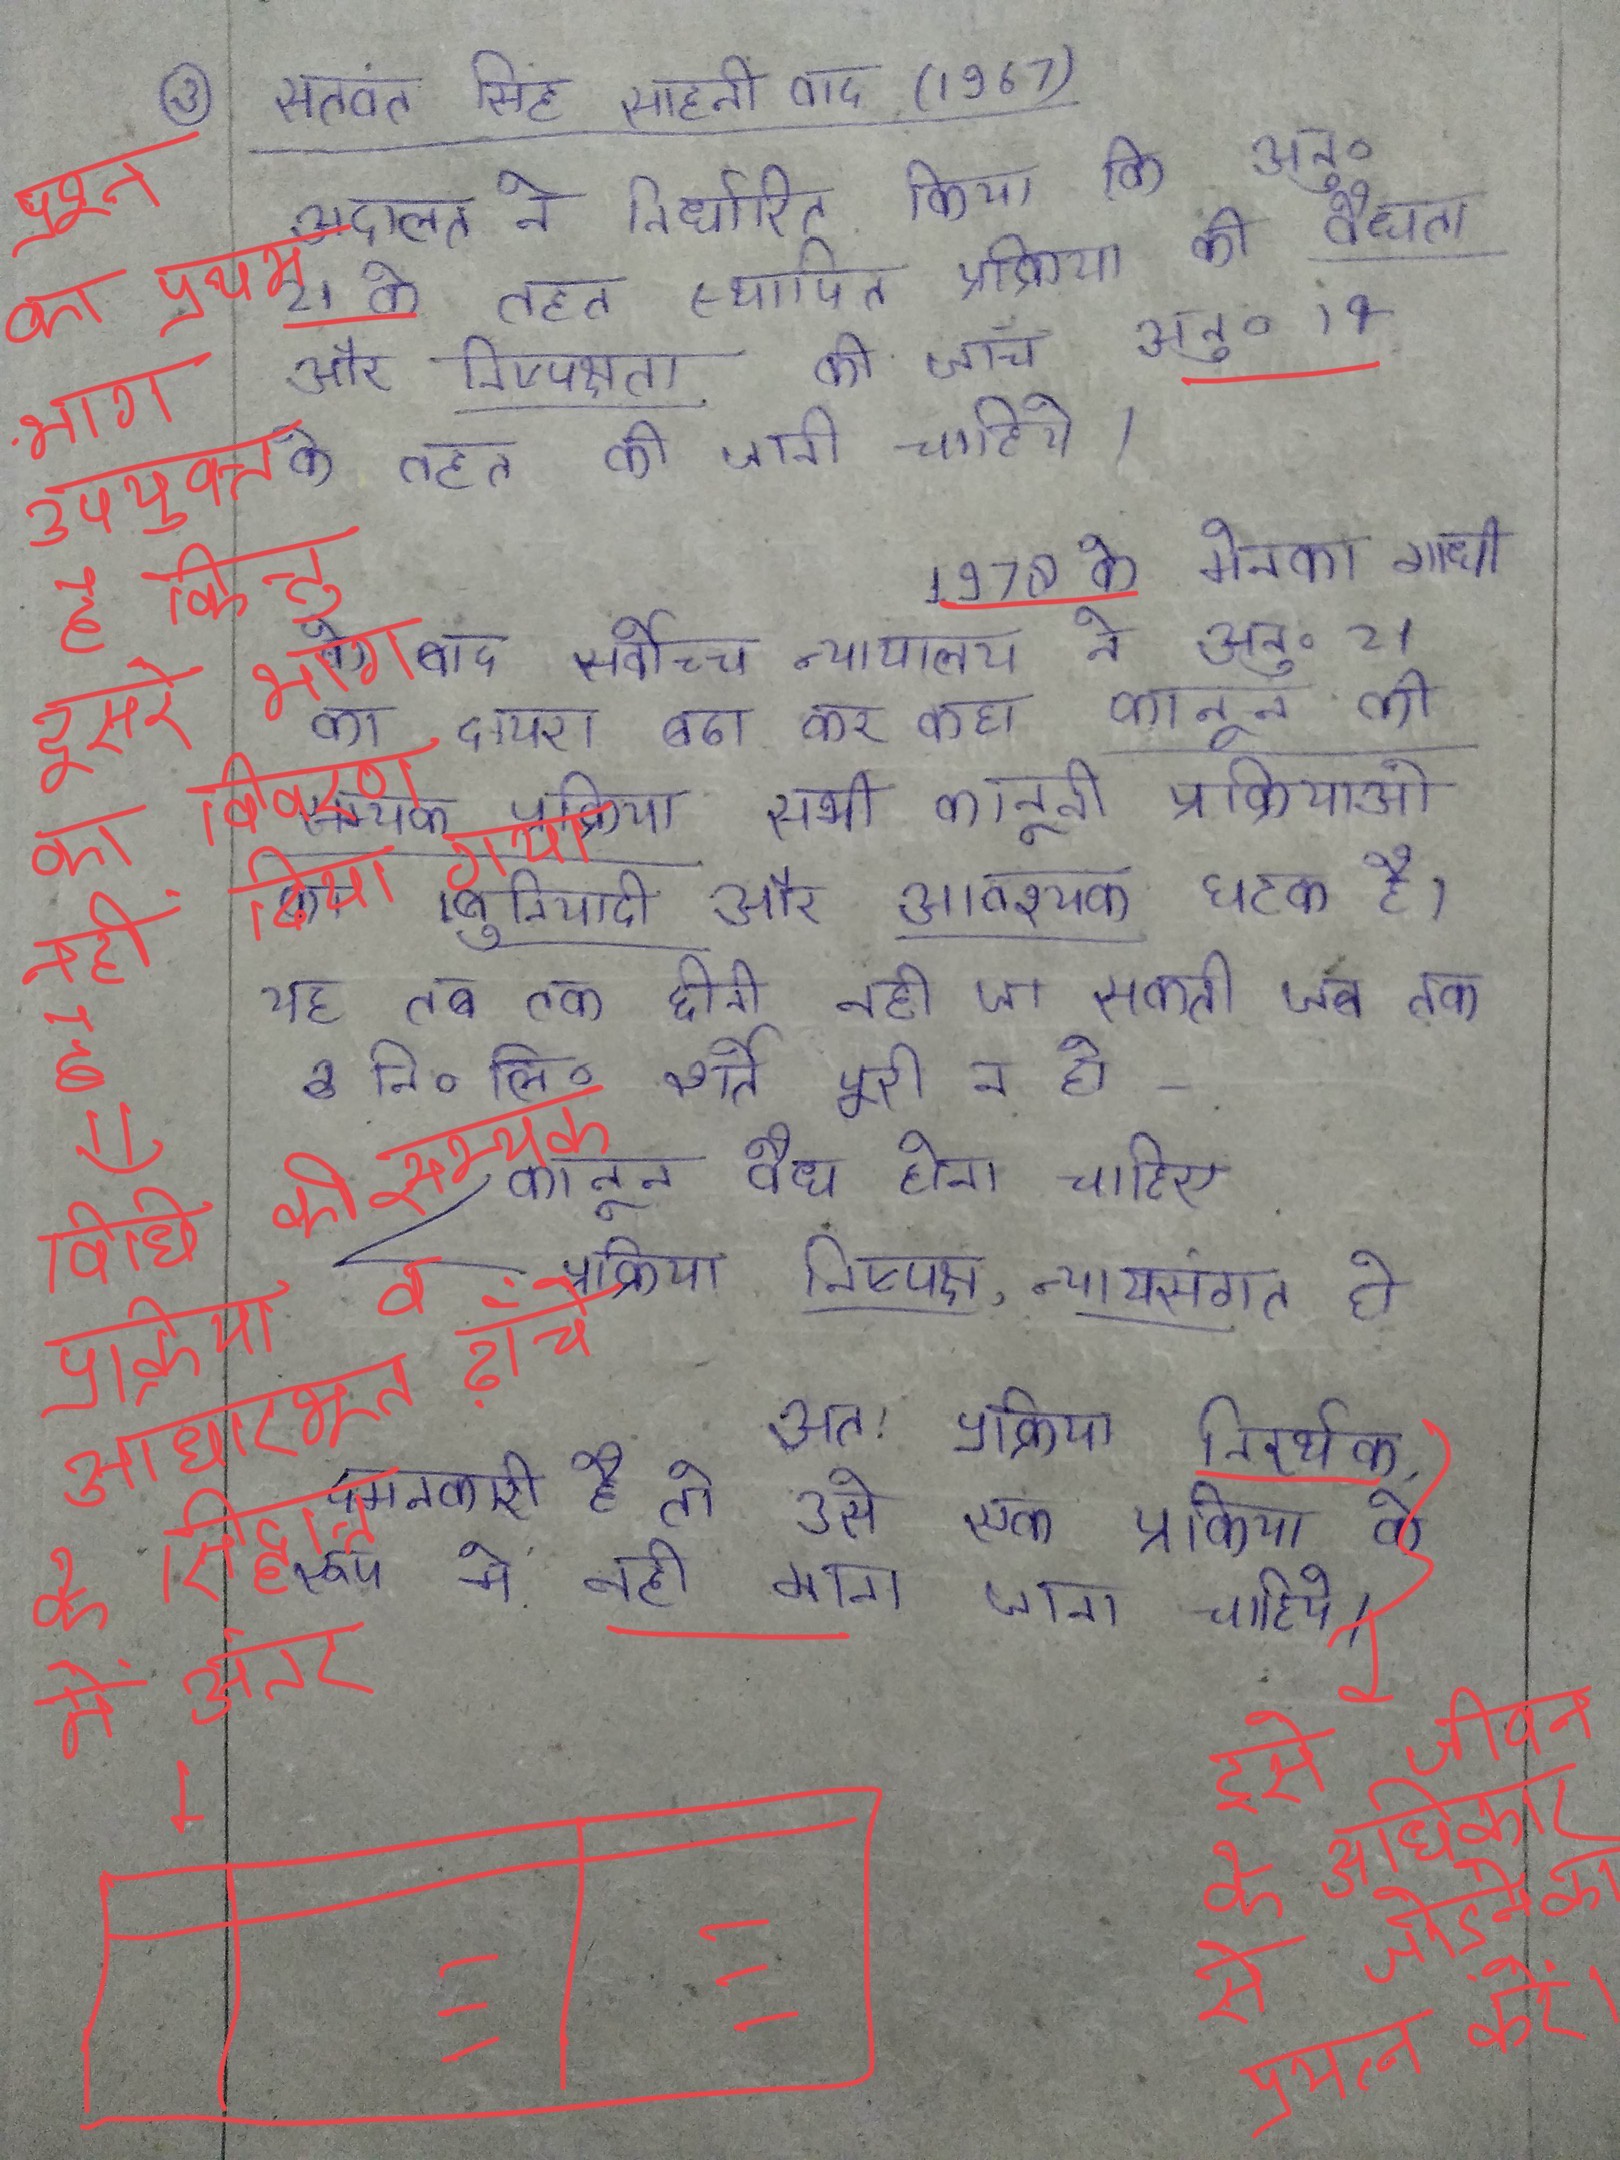 ③ सतवंत सिंह साहनी वाद (1967)
अदालत ने निर्धारित किया कि अनु०
21 के तहत स्थापित प्रक्रिया की वैधता
और निष्पक्षता की जाँच अनु० 14
के तहत की जानी चाहिये।
1978 के मेनका गाधी
के बाद सर्वोच्च न्यायालय ने अनु० 21
का दायरा बढा कर कहा कानून की
सम्यक प्रक्रिया सभी कानूनी प्रक्रियाओ
का बुनियादी और आवश्यक घटक है।
यह तब तक छीनी नही जा सकती जब तक
नि० लि० शर्ते पूरी न हो –
कानून वैध होना चाहिए
प्रक्रिया निष्पक्ष, न्यायसंगत हो
अतः प्रक्रिया निरर्थक,
दमनकारी है तो उसे एक प्रक्रिया के
रूप मे नही माना जाना चाहिये।
प्रश्न
का प्रथम
भाग
उपयुक्त
है किन्तु
दूसरे भाग
का विवरण
नहीं दिया गया
है
विधि की सम्यक
प्रक्रिया व
आधारभूत ढांचे
के सिद्धान्त
में अंतर
इसे जीवन
के अधिकार
से जोड़ने का
प्रयत्न करें।